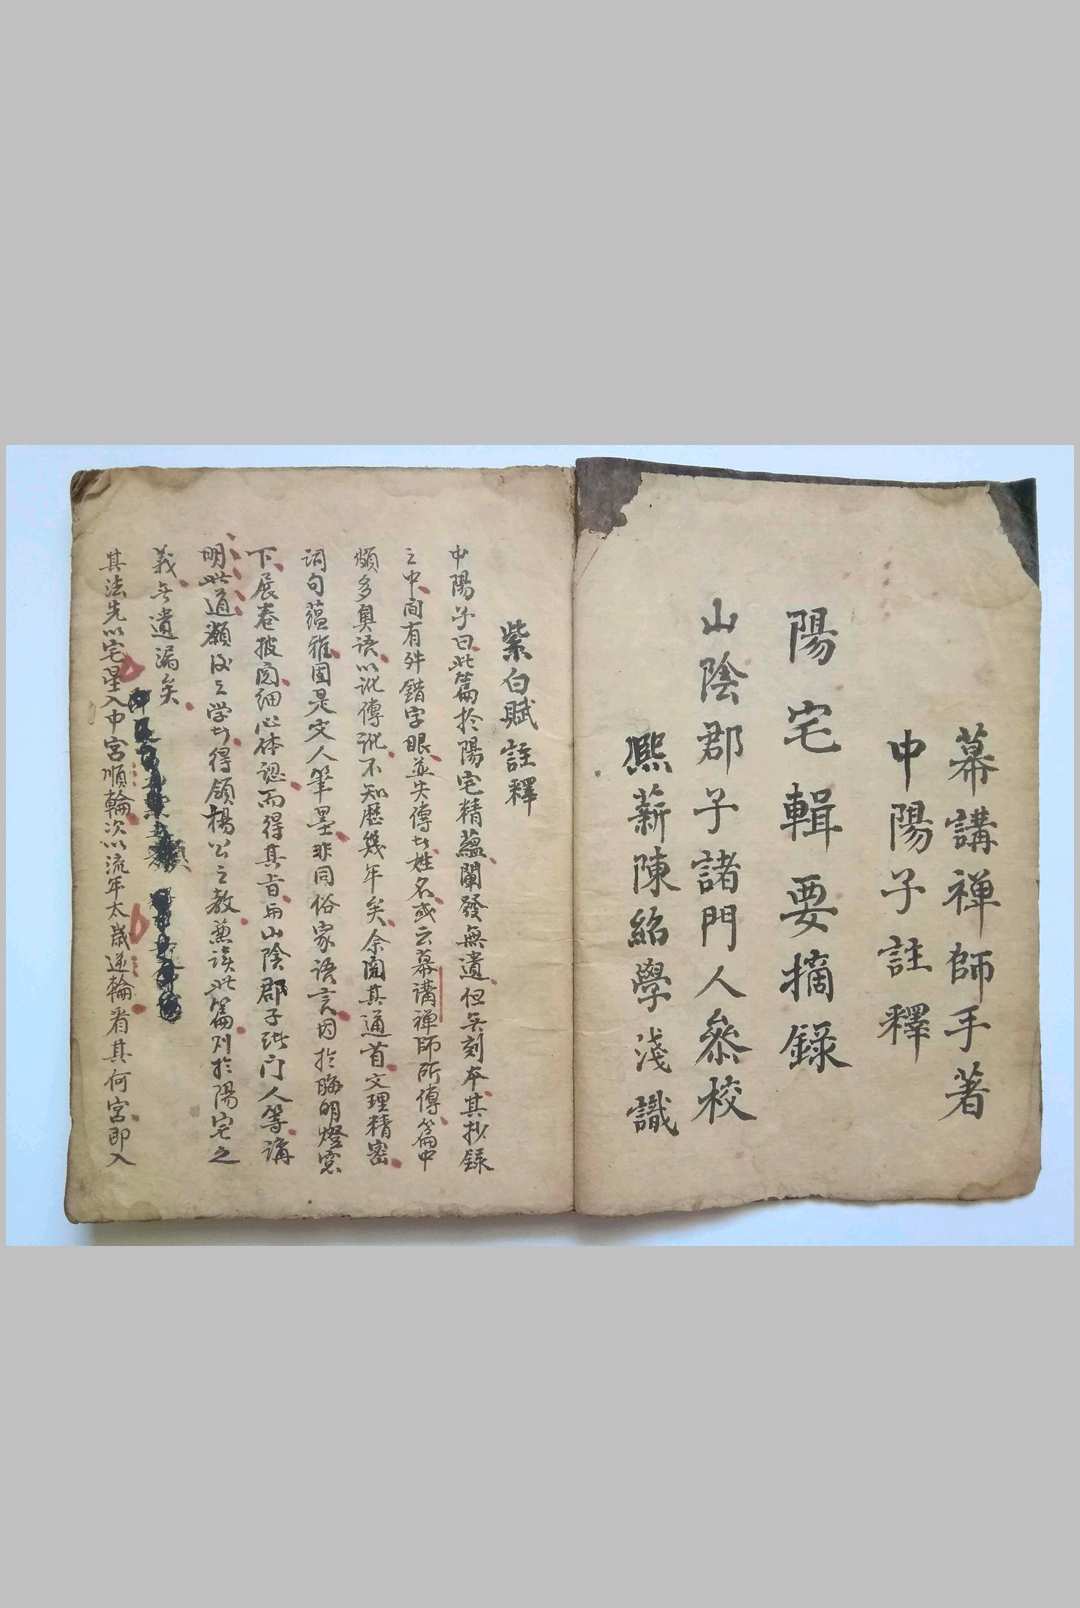 幕講禅師手著
中陽子註釋
陽宅輯要摘錄
山陰郡子諸門人叅校
熈薪陳紹學淺識
紫白賦註釋
中陽子曰此篇於陽宅精蘊闡發無遺但無刻本其抄録
之中間有舛錯字眼並失傳其姓名或云幕講禅師所傳篇中
頗多奥语以訛傳訛不知歷幾年矣余閲其通首文理精密
词句蕴雅固是文人筆墨非同俗家语言因於晦明燈窓
下展卷披图细心体認而得其旨与山陰郡子诸门人等講
明此道願後之学者得領楊公之教兼读此篇则於陽宅之
義無遺漏矣
其法先以宅星入中宫順輪次以流年太歲逆輪看其何宮即入